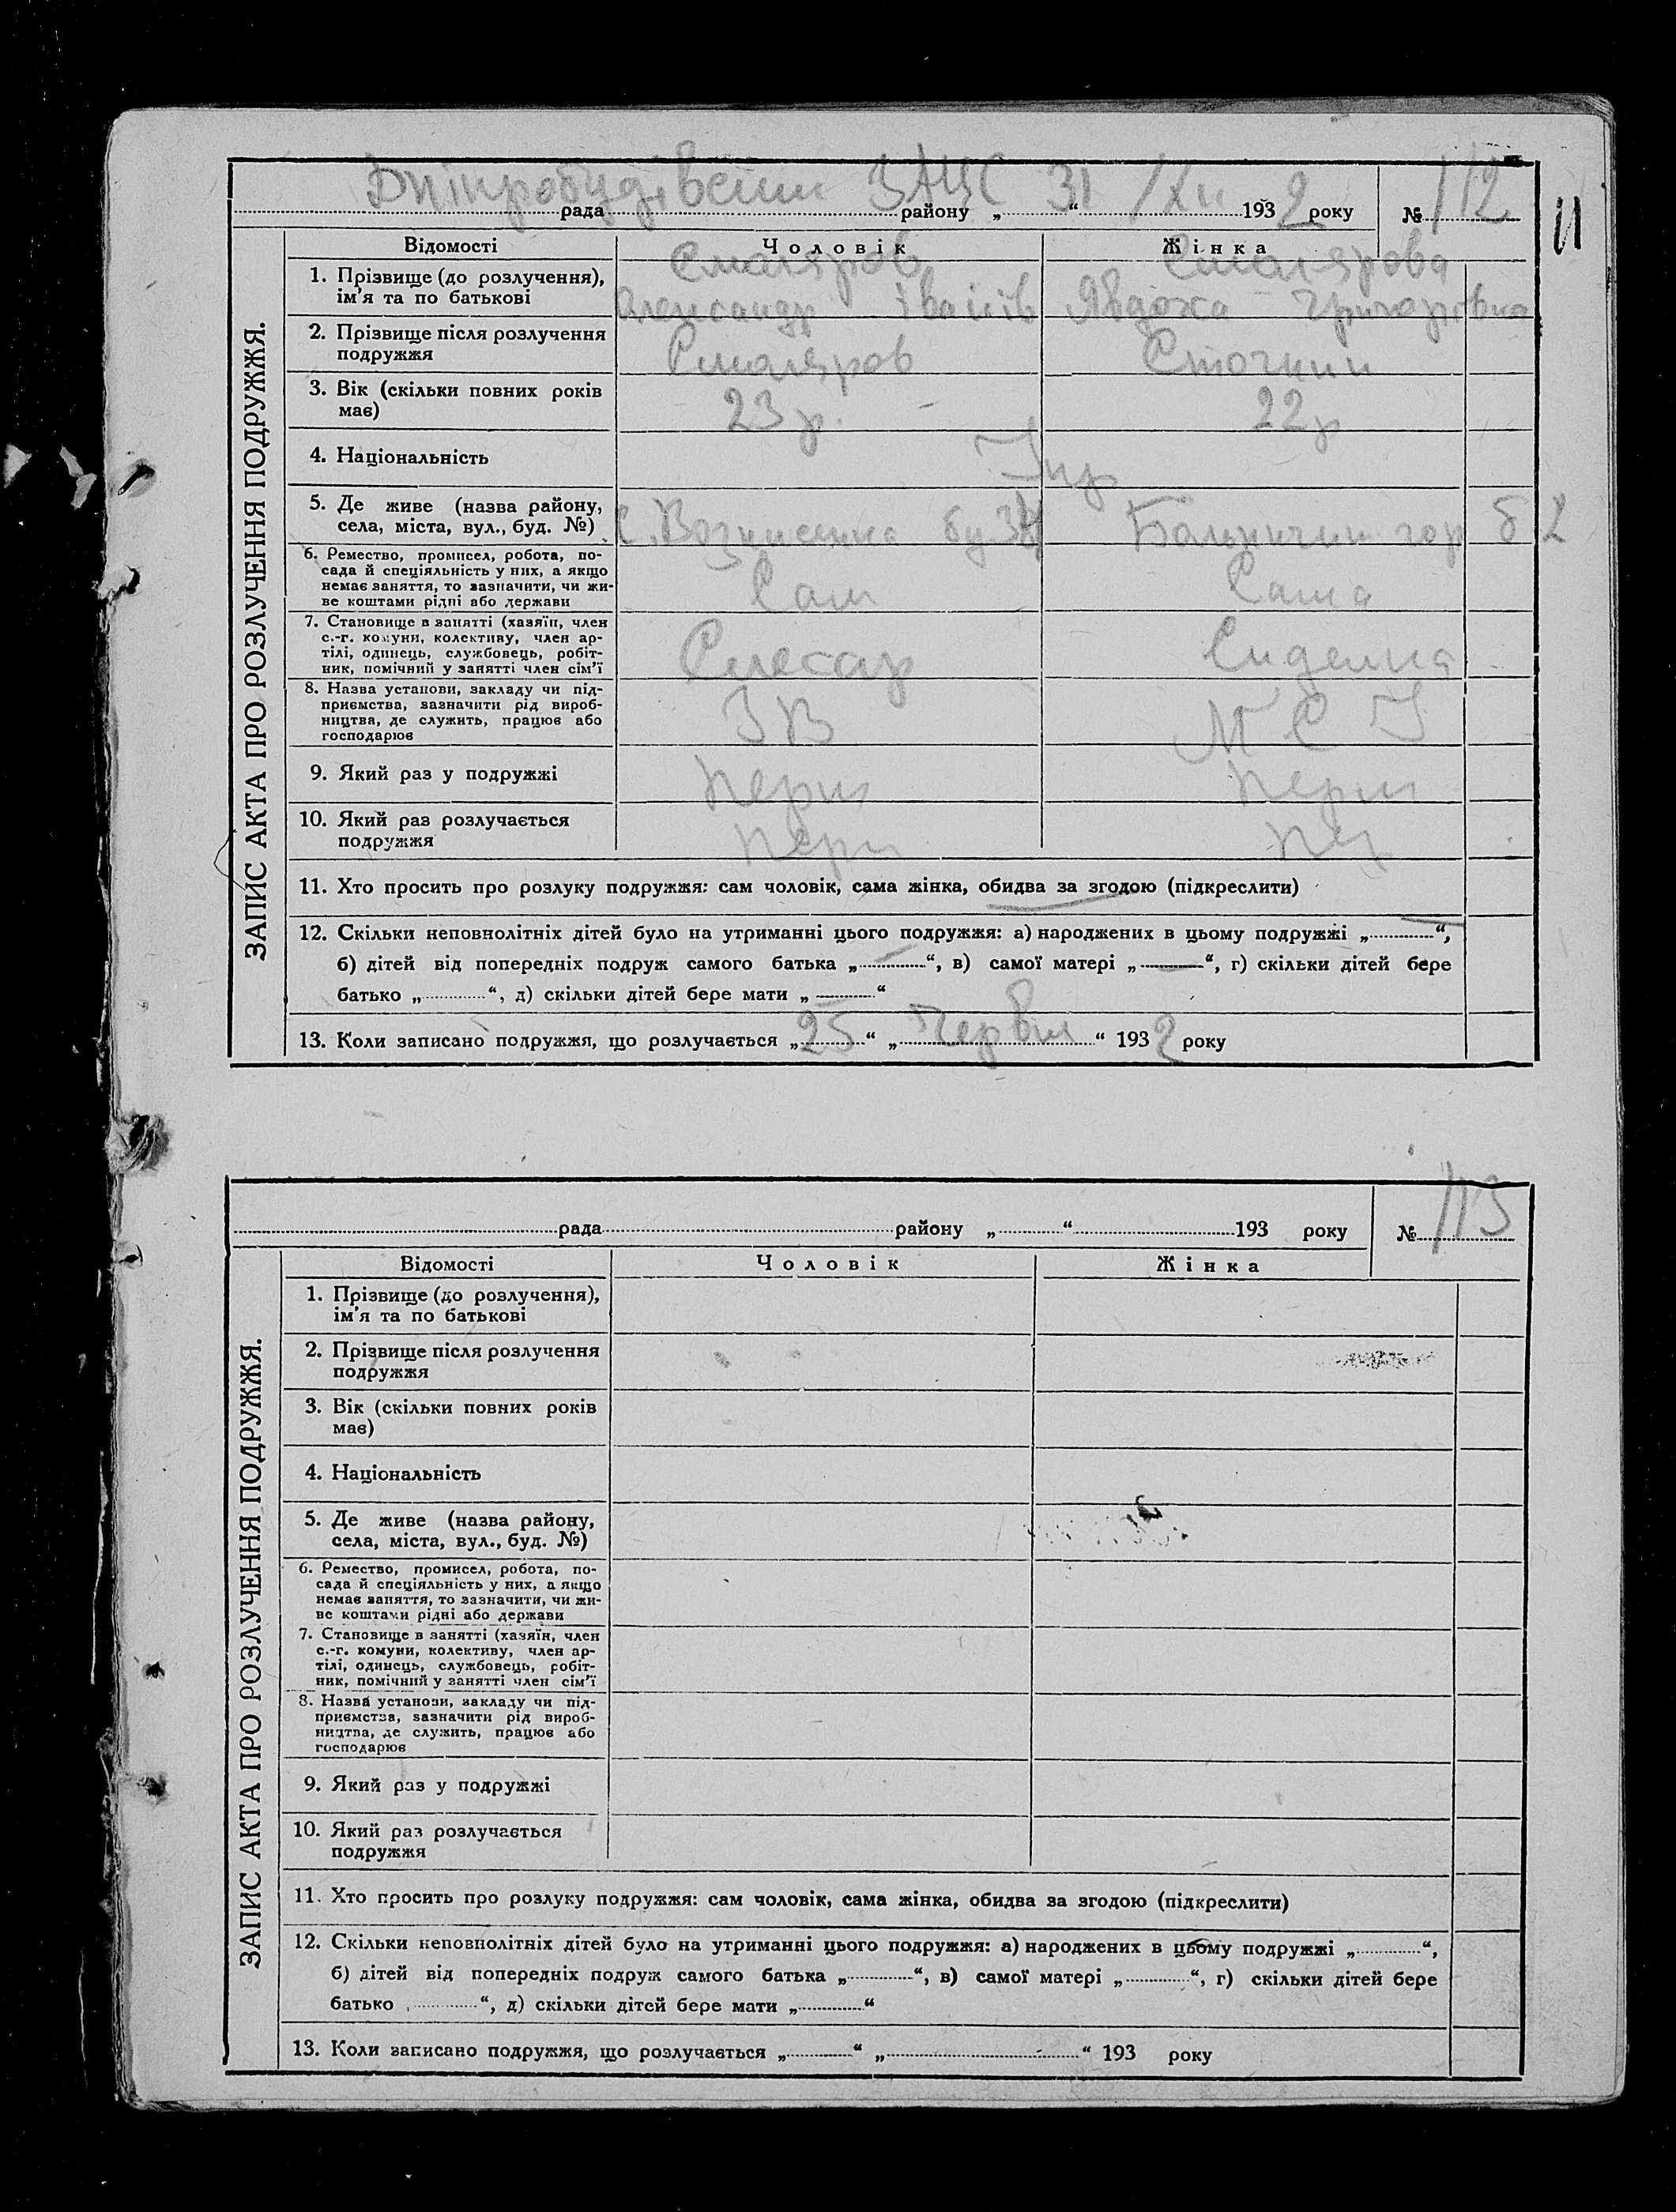 Дніпробудівський ЗАЦС 31 /XII
рада району „ “ 1932 року № 112
11
ЗАПИС АКТА ПРО РОЗЛУЧЕННЯ ПОДРУЖЖЯ.
Відомості Чоловік Жінка
1. Прізвище (до розлучення), Смаляров Смалярова
ім'я та по батькові Александр Іванів Явдоха Григорівна
2. Прізвище після розлучення
подружжя Смаляров Сточний
3. Вік (скільки повних років
має) 23 р. 22 р
4. Національність Укр
5. Де живе (назва району,
села, міста, вул., буд. №) С. Вознисенка Больничний гор б 2
6. Ремество, промисел, робота, по-
сада й спеціяльність у них, а якщо
немає заняття, то зазначити, чи жи- Сам Сама
ве коштами рідні або держави
7. Становище в занятті (хазяїн, член
с.-г. комуни, колективу, член ар-
тілі, одинець, службовець, робіт- Слесар Сиделка
ник, помічний у занятті член сім'ї
8. Назва установи, закладу чи під-
приємства, зазначити рід вироб-
ництва, де служить, працює або ЗВ
господарює
9. Який раз у подружжі перш перш
10. Який раз розлучається
подружжя перш
11. Хто просить про розлуку подружжя: сам чоловік, сама жінка, обидва за згодою (підкреслити)
12. Скільки неповнолітніх дітей було на утриманні цього подружжя: а) народжених в цьому подружжі „ — “,
б) дітей від попередніх подруж самого батька „ — “, в) самої матері „ — “, г) скільки дітей бере
батько „ “, д) скільки дітей бере мати „ — “
13. Коли записано подружжя, що розлучається „ 25 “ „ Червня “ 1932 року
рада району „ “ 193 року № 113
ЗАПИС АКТА ПРО РОЗЛУЧЕННЯ ПОДРУЖЖЯ.
Відомості Чоловік Жінка
1. Прізвище (до розлучення),
ім'я та по батькові
2. Прізвище після розлучення
подружжя
3. Вік (скільки повних років
має)
4. Національність
5. Де живе (назва району,
села, міста, вул., буд. №)
6. Ремество, промисел, робота, по-
сада й спеціяльність у них, а якщо
немає заняття, то зазначити, чи жи-
ве коштами рідні або держави
7. Становище в занятті (хазяїн, член
с.-г. комуни, колективу, член ар-
тілі, одинець, службовець, робіт-
ник, помічний у занятті член сім'ї
8. Назва установи, закладу чи під-
приємства, зазначити рід вироб-
ництва, де служить, працює або
господарює
9. Який раз у подружжі
10. Який раз розлучається
подружжя
11. Хто просить про розлуку подружжя: сам чоловік, сама жінка, обидва за згодою (підкреслити)
12. Скільки неповнолітніх дітей було на утриманні цього подружжя: а) народжених в цьому подружжі „ “,
б) дітей від попередніх подруж самого батька „ “, в) самої матері „ “, г) скільки дітей бере
батько „ “, д) скільки дітей бере мати „ “
13. Коли записано подружжя, що розлучається „ “ „ “ 193 року